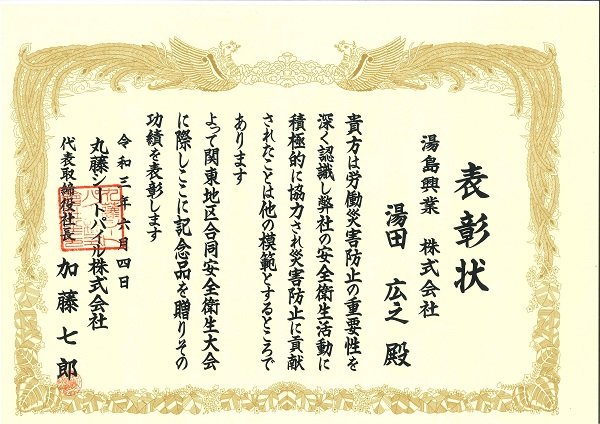 表彰状
湯島興業 株式会社
湯田 広之 殿
貴方は労働災害防止の重要性を
深く認識し弊社の安全衛生活動に
積極的に協力され災害防止に貢献
されたことは他の模範とするところで
あります
よって関東地区合同安全衛生大会
に際しここに記念品を贈りその
功績を表彰します
令和三年六月四日
丸藤シートパイル株式会社
代表取締役社長 加藤七郎